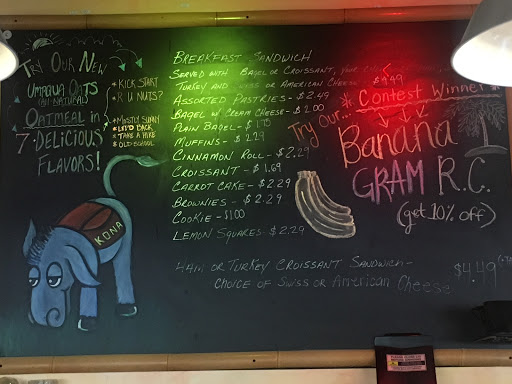 Try Our New
Umpqua Oats
(All Natural)
Oatmeal in
7 - Delicious
Flavors!
* Kick Start
* R U Nuts?
* Mostly Sunny
* Let'd Back
* Take a Hike
* Old School
KONA
Breakfast Sandwich
Served with Bagel or Croissant, your
Turkey and Swiss or American Cheese - $4.49
Assorted Pastries - $2.49
Bagel w/ Cream Cheese - $2.00
Plain Bagel - $1.75
Muffins - $2.29
Cinnamon Roll - $2.29
Croissant - $1.69
Carrot Cake - $2.29
Brownies - $2.29
Cookie - $1.00
Lemon Squares - $2.29
Ham or Turkey Croissant Sandwich -
Choice of Swiss or American Cheese
$4.49
* Contest Winner *
Try Our...
Banana
GRAM R.C.
(get 10% off)